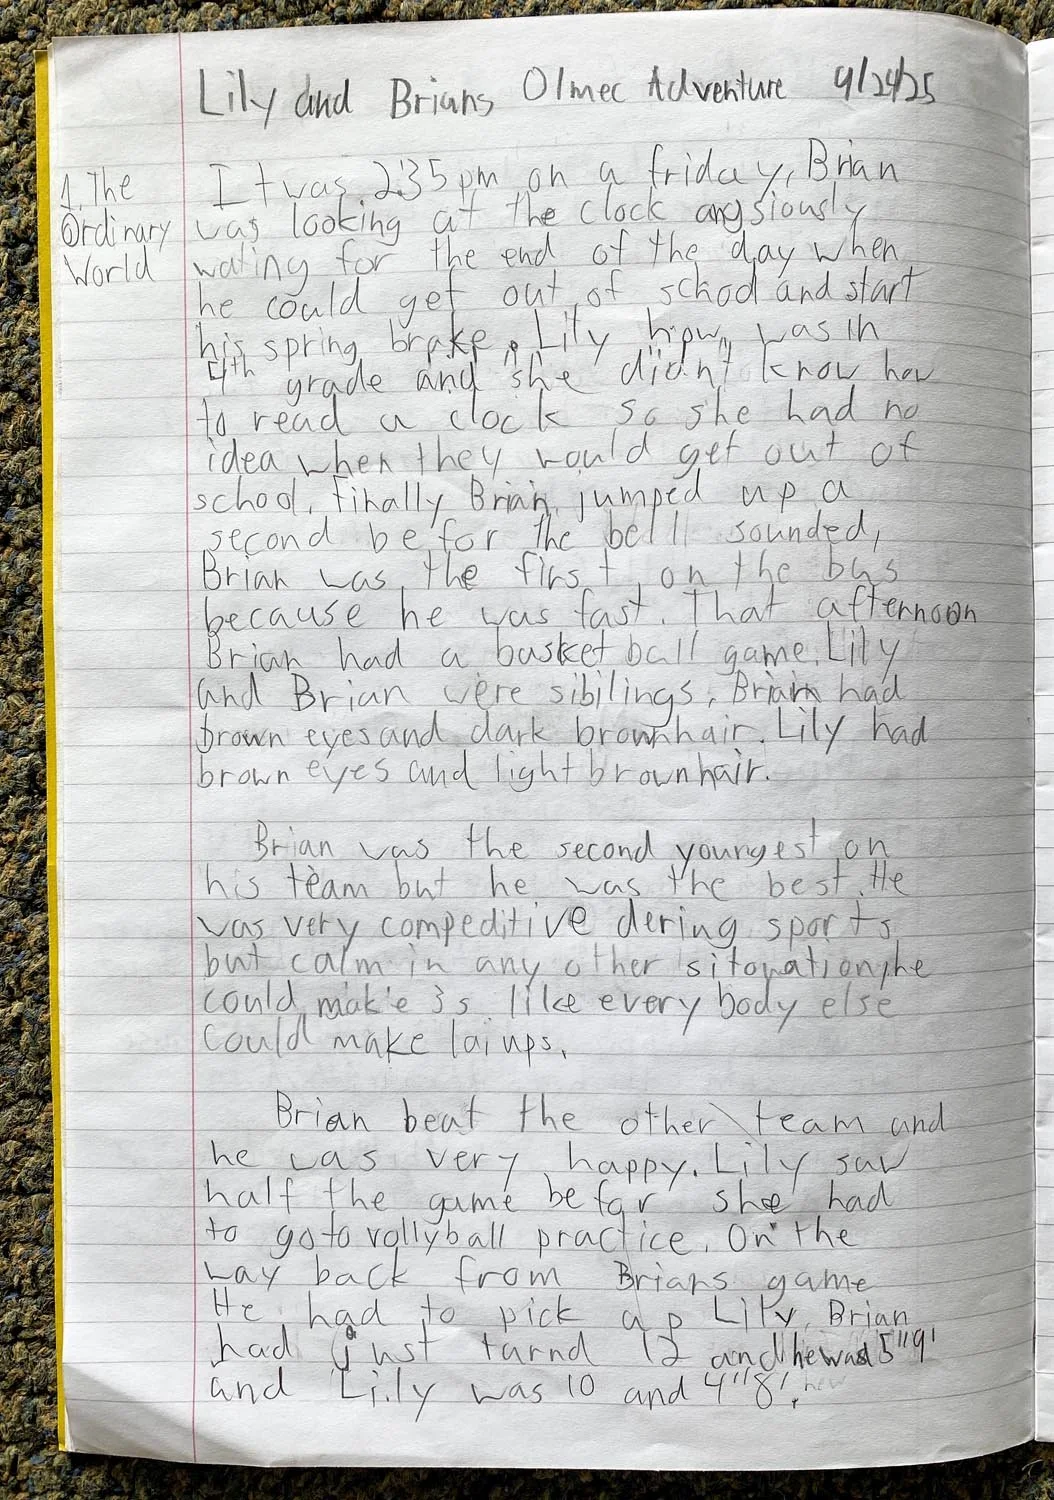 Lily and Brians Olmec Adventure 9/24/25
1. The
Ordinary
World
It was 2:35 pm on a friday, Brian
was looking at the clock angsiously
wating for the end of the day when
he could get out of school and start
his spring brake, Lily how was in
4th grade and she didn't know how
to read a clock so she had no
idea when they would get out of
school. finally Brian jumped up a
second befor the bell sounded,
Brian was the first on the bus
because he was fast. That afternoon
Brian had a basket ball game. Lily
and Brian were sibilings. Briain had
brown eyes and dark brown hair. Lily had
brown eyes and light brown hair.
Brian was the second youngest on
his team but he was the best. He
was very compeditive dering sports
but calm in any other sitouation, he
could make 3s like every body else
could make lai ups.
Brian beat the other team and
he was very happy. Lily saw
half the game befor she had
to go to vollyball practice. On the
way back from Brians game
He had to pick up Lily, Brian
had just turnd 12 and he was 5"9'
and Lily was 10 and 4"8'.